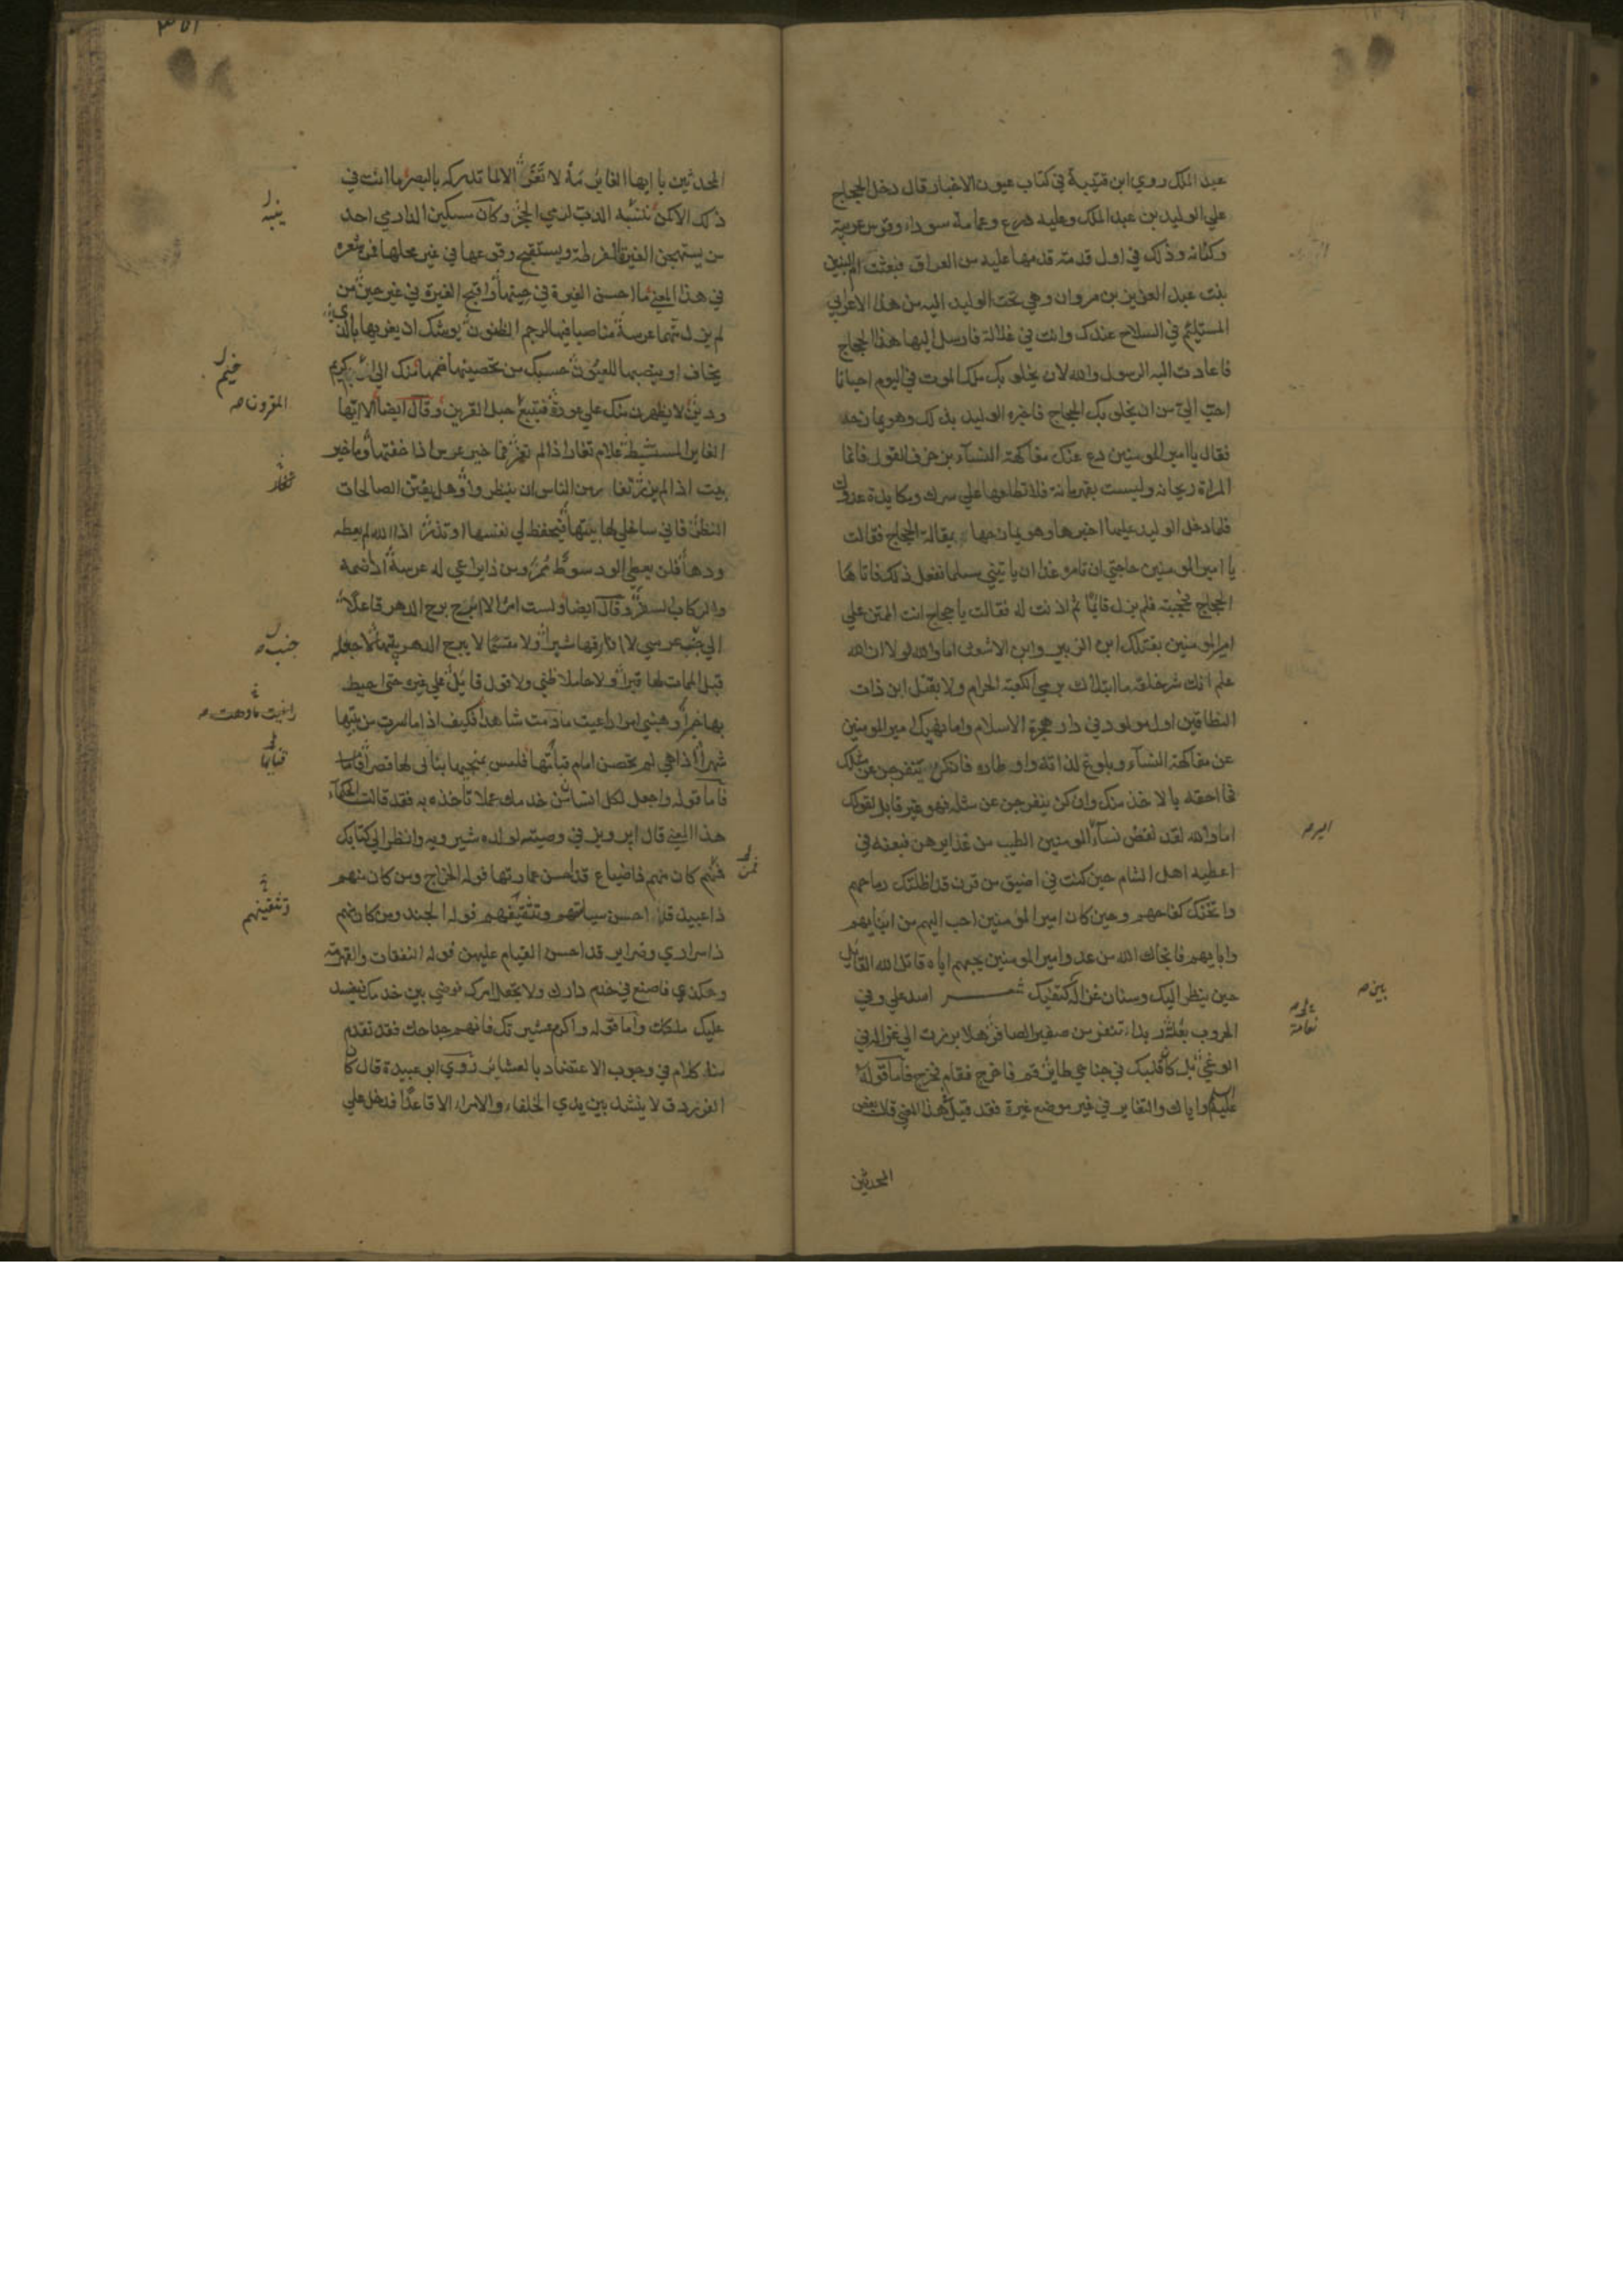 عبد الملك روي ابن قتيبة في كتاب عيون الاخبار قال دخل الحجاج
علي الوليد بن عبد الملك وعليه درع وعمامة سوداء وقوس عربية
وكنانه وذلك في اول قدمة قدمها عليه من العراق فبعثت ام البنين
بنت عبد العزيز بن مروان وهي تحت الوليد اليه من هذا الاعرابي
المستلئم في السلاح عندك وانت في غلالة فارسل اليها هذا الحجاج
فاعادت اليه الرسول والله لان يخلو بك ملك الموت في اليوم احيانا
احب الي من ان يخلو بك الحجاج فاخبره الوليد بذلك وهو يمازحه
فقال يا امير المومنين دع عنك مفاكهة النساء بزخرف القول فانما
المراة ريحانه وليست بقهرمانة فلا تطلعها علي سرك ومكايدة عدوك
فلما دخل الوليد عليها اخبرها وهو يمازحها بمقالة الحجاج فقالت
يا امير المومنين حاجتي ان تامره غدا ان ياتيني مسلما ففعل ذلك فاتاها
الحجاج فحجبته فلم يزل قائما ثم اذنت له فقالت يا حجاج انت الممتن علي
امير المومنين بقتلك ابن الزبير وابن الاشعث اما والله لولا ان الله
علم انك شر خلقه ما ابتلاك برمي الكعبة الحرام ولا بقتل ابن ذات
النطاقين اول مولود في دار هجرة الاسلام واما نهيك امير المومنين
عن مفاكهة النساء وبلوغ لذاته واوطاره فان كن ينفرجن عن مثلك
فما احقه بالاخذ منك وان كن ينفرجن عن مثله فهو غير قابل لقولك
اما والله لقد نفض نساء المومنين الطيب من غدايرهن فبعنه في
اعطيه اهل الشام حين كنت في اضيق من قرن قد اظلتك رماحهم
واثخنك كفاحهم وحين كان امير المومنين احب اليهم من ابنايهم
وابايهم فانجاك الله من عدو امير المومنين بحبهم اياه قاتل الله القائل
حين ينظر اليك وسنان غزالة بين كتفيك شعر اسد علي وفي
الحروب نعامة ربداء تنفر من صفير الصافر هلا برزت الي غزالة في
الوغي بل كان قلبك في جناحي طاير قم فاخرج فقام فخرج فاما قوله
عليه السلم واياك والتغاير في غير موضع غيرة فقد قيل هذا المعني قال بعض
المحدثين
امير صه
بين صه
نعامة
المحدثين يا ايها الغاير مه لا تغر الا لما تدركه بالبصر ما انت في
ذلك الا كمن تنبيه الدب لرمي الحجر وكان مسكين الدارمي احد
من يستهجن الغيرة المفرطة ويستقبح وقوعها في غير محلها فمن شعره
في هذا المعني ما احسن الغيرة في حينها واقبح الغيرة في غير حين من
لم يزل متهما عرسه مناصبا فيها لرجم الظنون يوشك ان يغريها بالذي
يخاف او ينصبها للعيون حسبك من تحصينها ضمها منك الي خيم كريم
ودين لا يظهرن منك علي عورة فيتبع حبل القرين وقال ايضا الا ايها
الغاير المستشيط علام تغار اذا لم تغر فما خير عرس اذا خفتها وما خير
بيت اذا لم يزر تغار من الناس ان ينظروا وهل يفتن الصالحات
النظر فاني ساخلي لها بيتها فتحفظ لي نفسها او تذر اذا الله لم يعطه
ودها فلن يعطي الود سوط ممر ومن ذا يراعي له عرسه اذا ضمه
والركاب السفر وقال ايضا ولست امرا لا ابرح الدهر قاعدا
الي جنب عرسي لا افارقها شبرا ولا مقسما لا يبرح الدهر بيتها لاجعله
قبل الممات لها قبرا ولا حاملا ظني ولا قول قائل علي غيره حتي احيط
بها خبرا وهبني امرا راعيت ما دمت شاهدا فكيف اذا ما سرت من بيتها
شهرا اذا هي لم تحصن امام قبابها فليس بمنجيها بنائي لها قصرا
فاما قوله واجعل لكل انسان من خدمك عملا تاخذه به فقد قالت الحكماء
هذا المعني قال ابرويز في وصيته لولده شيرويه وانظر الي كتابك
فمن كان منهم ذا ضياع قد احسن عمارتها فوله الخراج ومن كان منهم
ذا عبيد قد احسن سياستهم وتثقيفهم فوله الجند ومن كان منهم
ذا سراري وضراير قد احسن القيام عليهن فوله النفقات والقهرمة
وهكذي فاصنع في خدم دارك ولا تجعل امرك فوضي بين خدمك فيفسد
عليك ملكك واما قوله واكرم عشيرتك فانهم جناحك فقد تقدم
منا كلام في وجوب الاعتضاد بالعشاير روي ابو عبيدة قال كان
الفرزدق لا ينشد بين يدي الخلفاء والامراء الا قاعدا فدخل علي
ينبيه
خيم
المقرون صه
جنب صه
راعيت ما دمت صه
قبابها
فمن
وتثقيفهم